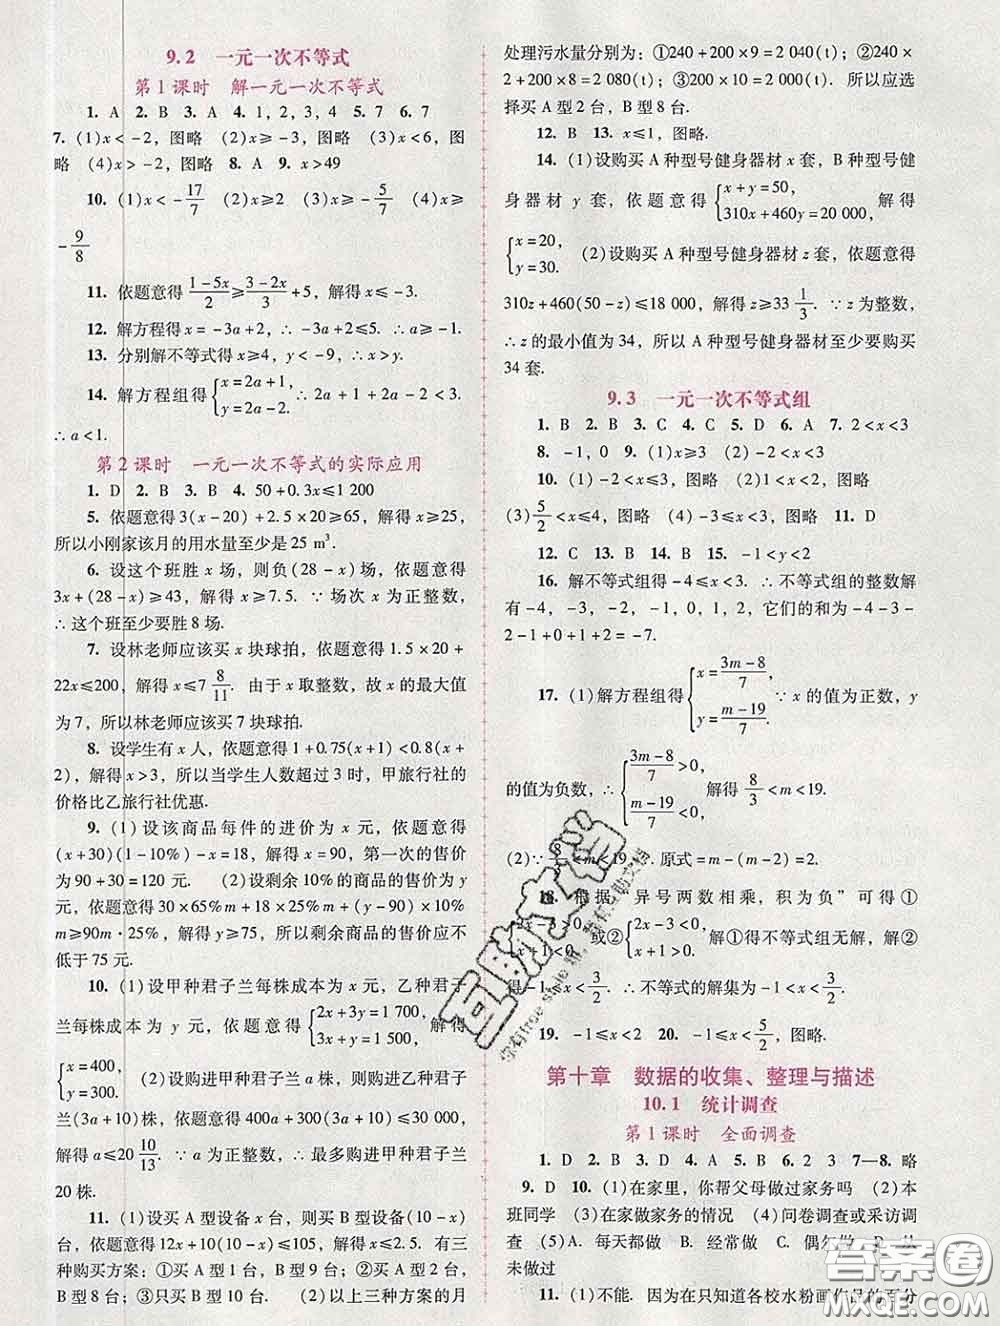 9.2 一元一次不等式
第1课时 解一元一次不等式
1. A 2. B 3. A 4. 1, 2, 3, 4 5. 7 6. 7
7. (1)x<-2, 图略 (2)x≥-3, 图略 (3)x<6, 图
略 (4)x>-2, 图略 8. A 9. x>49
10. (1)x<-17/7 (2)x≥2 (3)x≥-5/7 (4)x≥
-9/8
11. 依题意得(1-5x)/2≥(3-2x)/3+5, 解得x≤-3.
12. 解方程得x=-3a+2, ∴-3a+2≤5. ∴a≥-1.
13. 分别解不等式得x≥4, y<-9, ∴x>y.
14. 解方程组得{x=2a+1, y=2a-2. ∴2a+1+2a-2<3.
∴a<1.
第2课时 一元一次不等式的实际应用
1. D 2. B 3. B 4. 50+0.3x≤1 200
5. 依题意得3(x-20)+2.5×20≥65, 解得x≥25,
所以小刚家该月的用水量至少是25 m³.
6. 设这个班胜x场, 则负(28-x)场, 依题意得
3x+(28-x)≥43, 解得x≥7.5. ∵场次x为正整数,
∴这个班至少要胜8场.
7. 设林老师应该买x块球拍, 依题意得1.5×20+
22x≤200, 解得x≤7 8/11. 由于x取整数, 故x的最大值
为7, 所以林老师应该买7块球拍.
8. 设学生有x人, 依题意得1+0.75(x+1)<0.8(x+
2), 解得x>3, 所以当学生人数超过3时, 甲旅行社的
价格比乙旅行社优惠.
9. (1)设该商品每件的进价为x元, 依题意得
(x+30)(1-10%)-x=18, 解得x=90, 第一次的售价
为90+30=120元. (2)设剩余10%的商品的售价为y
元, 依题意得30×65%m+18×25%m+(y-90)×10%
m≥90m·25%, 解得y≥75, 所以剩余商品的售价应不
低于75元.
10. (1)设甲种君子兰每株成本为x元, 乙种君子
兰每株成本为y元, 依题意得{2x+3y=1 700, 3x+y=1 500, 解得
{x=400, y=300. (2)设购进甲种君子兰a株, 则购进乙种君子
兰(3a+10)株, 依题意得400a+300(3a+10)≤30 000,
解得a≤20 10/13. ∵a为正整数, ∴最多购进甲种君子兰
20株.
11. (1)设买A型设备x台, 则买B型设备(10-x)
台, 依题意得12x+10(10-x)≤105, 解得x≤2.5. 有三
种购买方案: ①买A型1台, B型9台; ②买A型2台,
B型8台; ③只买B型10台. (2)以上三种方案的月
处理污水量分别为: ①240+200×9=2 040(t); ②240×
2+200×8=2 080(t); ③200×10=2 000(t). 所以应选
择买A型2台, B型8台.
12. B 13. x≤1, 图略.
14. (1)设购买A种型号健身器材x套, B种型号健
身器材y套, 依题意得{x+y=50, 310x+460y=20 000, 解得
{x=20, y=30. (2)设购买A种型号健身器材z套, 依题意得
310z+460(50-z)≤18 000, 解得z≥33 1/3. ∵z为整数,
∴z的最小值为34, 所以A种型号健身器材至少要购买
34套.
9.3 一元一次不等式组
1. B 2. B 3. C 4. C 5. D 6. A 7. 2<x<3
8. -1, 0 9. (1)x≥3 (2)-2<x<3
10. (1)-2<x≤3, 图略 (2)1<x<2, 图略
(3)5/2<x≤4, 图略 (4)-3≤x<3, 图略 11. D
12. C 13. B 14. B 15. -1<y<2
16. 解不等式组得-4≤x<3. ∴不等式组的整数解
有-4, -3, -2, -1, 0, 1, 2, 它们的和为-4-3-
2-1+0+1+2=-7.
17. (1)解方程组得{x=(3m-8)/7, y=(m-19)/7. ∵x的值为正数, y
的值为负数, ∴{(3m-8)/7>0, (m-19)/7<0. 解得8/3<m<19.
(2)∵<m<19, ∴原式=m-(m-2)=2.
18. 根据“异号两数相乘, 积为负”可得①
或②{2x-3<0, x+1>0. 解①得不等式组无解, 解②
得-1<x<3/2. ∴不等式的解集为-1<x<3/2.
19. -1≤x<2 20. -1≤x<5/2, 图略.
第十章 数据的收集、整理与描述
10.1 统计调查
第1课时 全面调查
1. D 2. B 3. D 4. A 5. B 6. 2 3 7—8. 略
9. D 10. (1)在家里, 你帮父母做过家务吗 (2)本
班同学 (3)在家做家务的情况 (4)问卷调查或采访调
查 (5)A. 每天都做 B. 经常做 C. 偶尔做 D. 从
未做过
11. (1)不能. 因为在只知道各校水粉画作品的百分
互助文档
你有free style 酷, 我有互助文档
答案圈
MXQE.COM